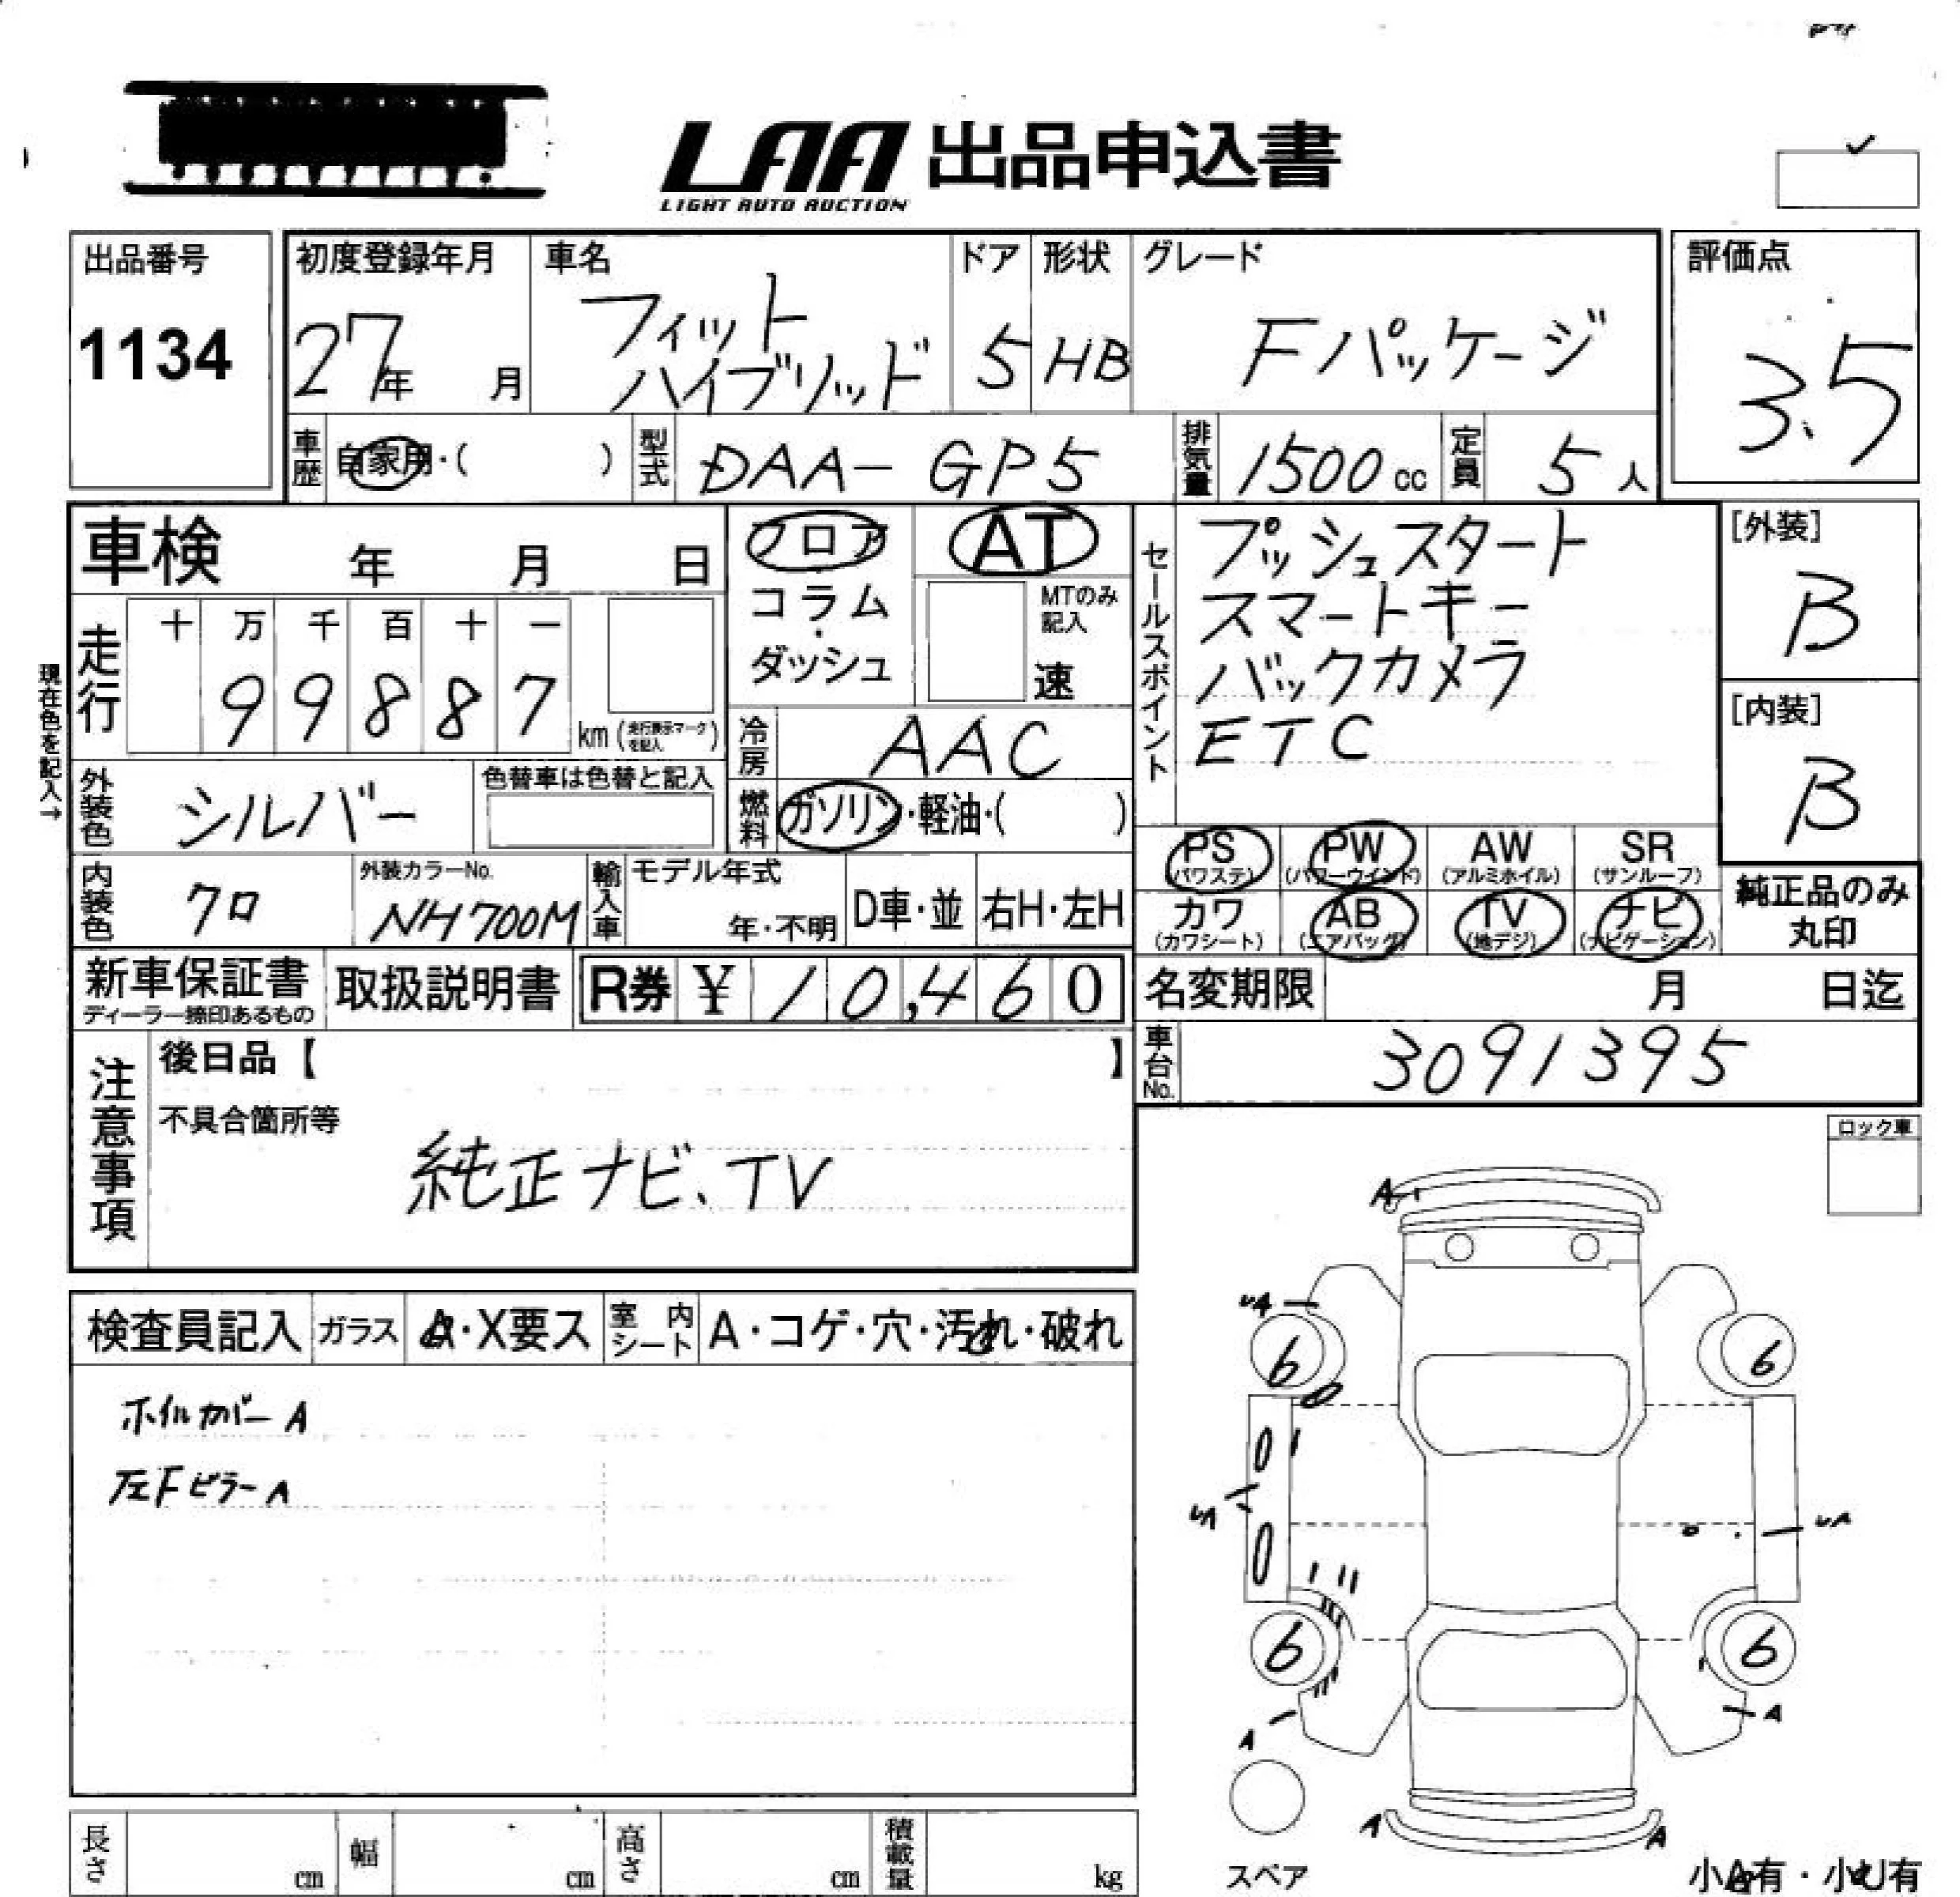 LAA 出品申込書
LIGHT AUTO AUCTION
出品番号
1134
初度登録年月
27年 月
車名
フィット
ハイブリッド
ドア
5
形状
HB
グレード
Fパッケージ
評価点
3.5
車歴
自家用・( )
型式
DAA-GP5
排気量
1500cc
定員
5人
車検 年 月 日
フロア
コラム
・
ダッシュ
AT
MTのみ
記入
速
セールスポイント
プッシュスタート
スマートキー
バックカメラ
ETC
[外装]
B
[内装]
B
現在色を記入→
走行
十 万 千 百 十 一
9 9 8 8 7
km(走行表示マークを記入)
冷房
AAC
外装色
シルバー
色替車は色替と記入
燃料
ガソリン・軽油・( )
内装色
クロ
外装カラーNo.
NH700M
輸入車
モデル年式
年・不明
D車・並
右H・左H
PS
(パワステ)
PW
(パワーウインド)
AW
(アルミホイル)
SR
(サンルーフ)
カワ
(カワシート)
AB
(エアバッグ)
TV
(地デジ)
ナビ
(ナビゲーション)
純正品のみ
丸印
新車保証書
ディーラー捺印あるもの
取扱説明書
R券 ¥10,460
名変期限 月 日迄
車台No.
3091395
注意事項
後日品【 】
不具合箇所等
純正ナビ、TV
ロック車
検査員記入
ガラス
A・X要ス
室内
シート
A・コゲ・穴・汚れ・破れ
ホイルカバーA
左FピラーA
A
UA
6
6
UA
UA
6
6
A
A
A
A
スペア
小A有・小U有
長さ cm
幅 cm
高さ cm
積載量 kg